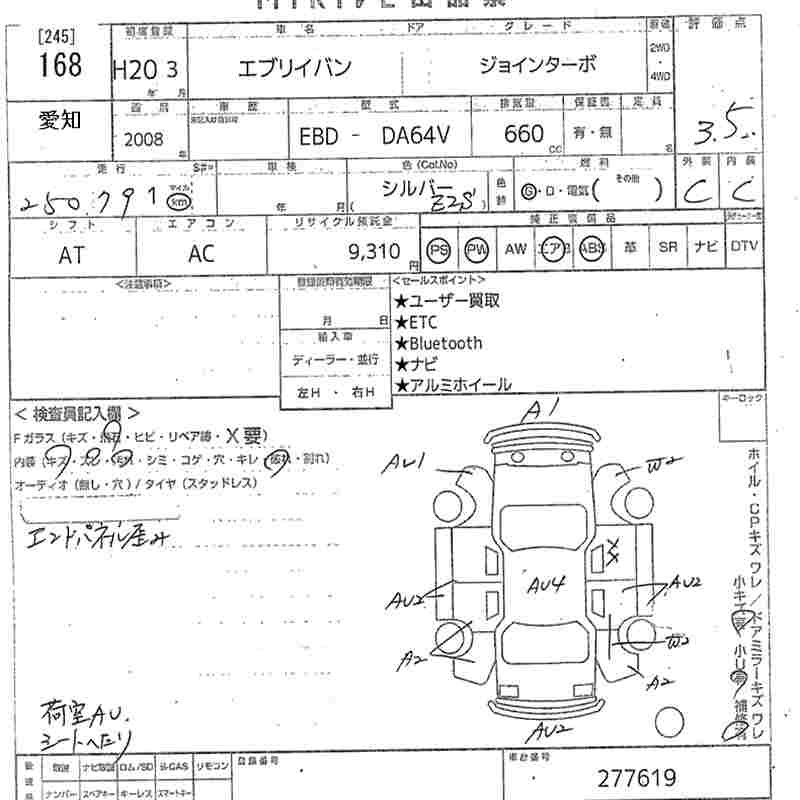 [245]
168
初度登録 車名 ドア グレード
H20 3 エブリイバン ジョインターボ
年 月
2WD
4WD
評価点
3.5
愛知
車歴 型式 排気量 保証書 定員
2008 年
EBD - DA64V 660 CC 有・無 名
走行 車検 色(Col.No) 燃料 外装 内装
250,791 マイル km
年 月( シルバー Z2S )
G・D・電気( その他 )
C C
シフト エアコン リサイクル預託金 純正装備品
AT AC 9,310 円
PS PW AW エアB ABS 革 SR ナビ DTV
<注意事項>
月 日
輸入車
ディーラー・並行
左H・右H
<セールスポイント>
★ユーザー買取
★ETC
★Bluetooth
★ナビ
★アルミホイール
キーロック
< 検査員記入欄 >
Fガラス (キズ・飛石・ヒビ・リペア跡・X要)
内装 (キズ・スレ・汚れ・シミ・コゲ・穴・キレ・破れ・割れ)
オーディオ (無し・穴) / タイヤ (スタッドレス)
エンドパネル歪み
荷室AU.
シートへたり
A1
AU1
W2
AU4
AU2
AU2
A2
W2
A2
AU2
ホイル・CPキズワレ/ドアミラーキズワレ
登録番号 車台番号
取説 ナビ取説 ロム/SD リモコン
ナンバー スペアキー キーレス スマートキー
277619